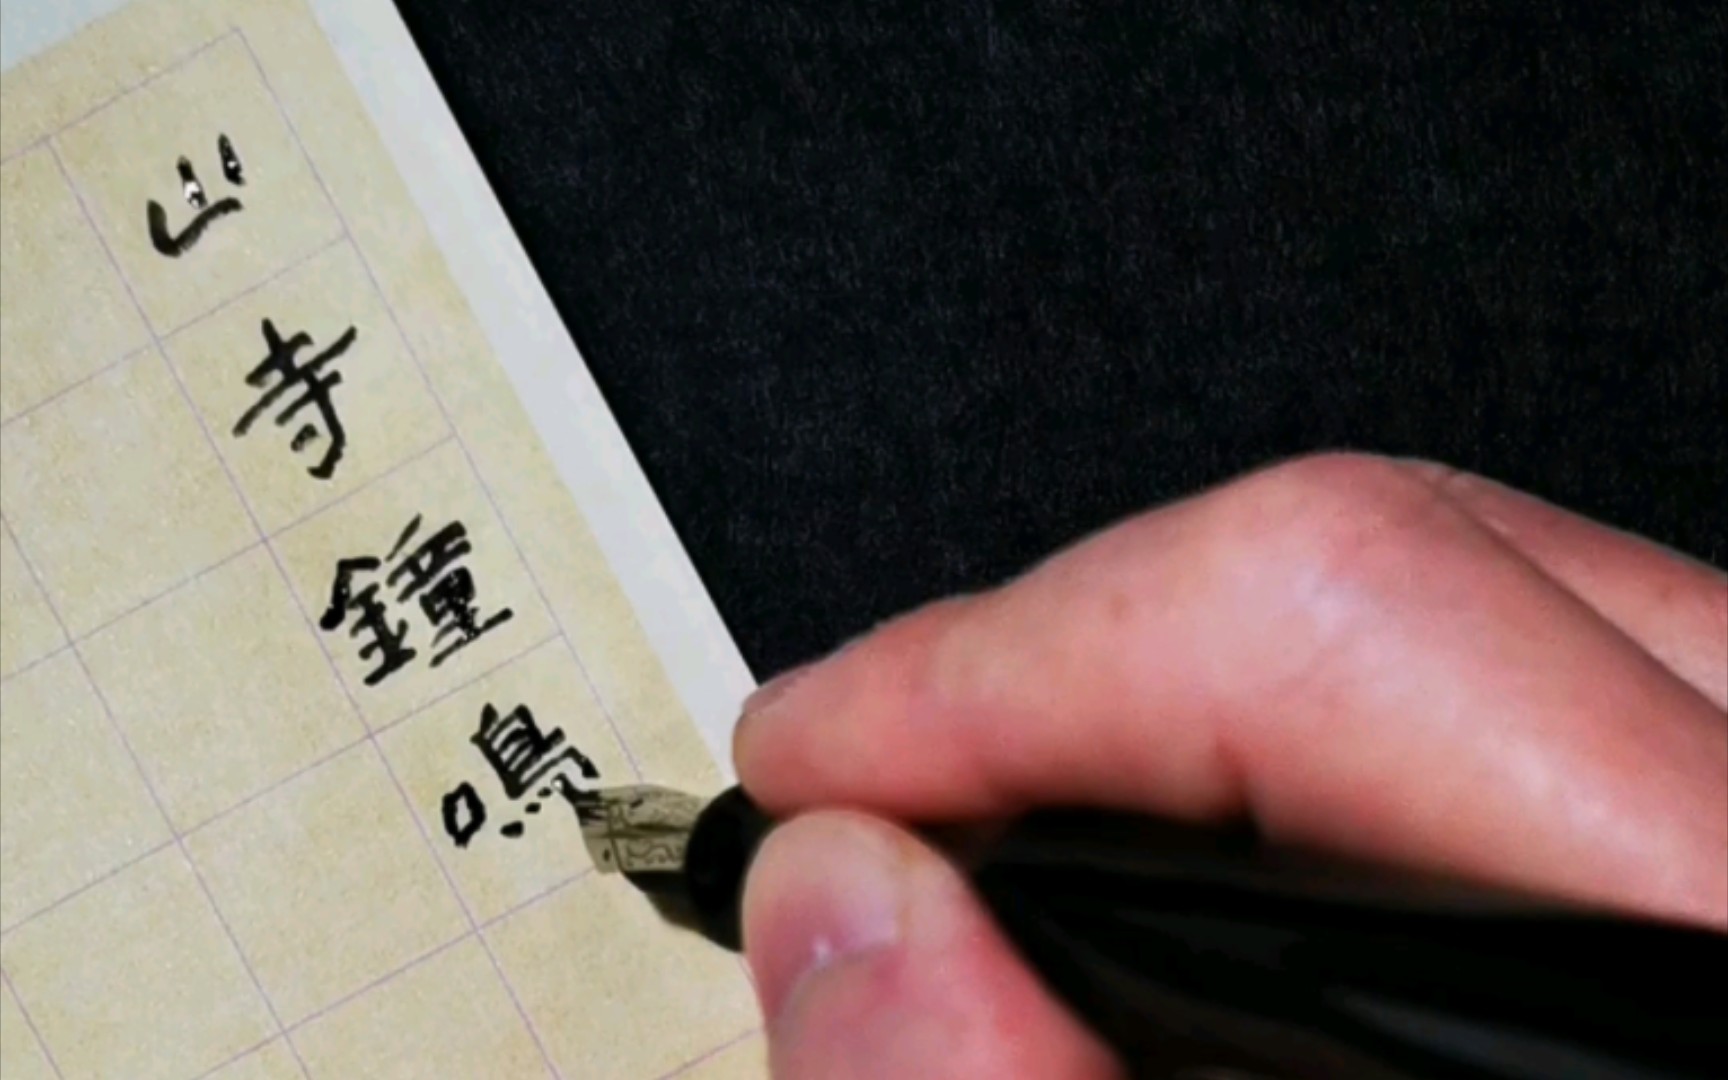 山寺鐘鳴